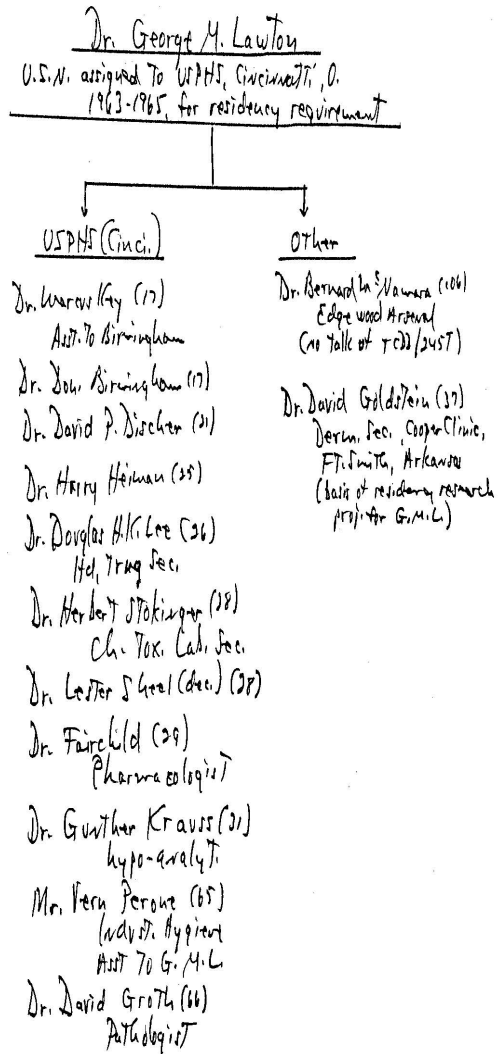 Dr. George M. Lawton
U.S.N. assigned to USPHS, Cincinnatti, O.
1963-1965, for residency requirement
USPHS (Cinci.)
Dr. Marcus Key (17)
Asst. To Birmingham
Dr. Don. Birmingham (17)
Dr. David P. Discher (21)
Dr. Harry Heiman (25)
Dr. Douglas H.K. Lee (26)
Hd, Trng Sec.
Dr. Herbert Stokinger (28)
Ch. Tox. Lab. Sec.
Dr. Lester Sheel (dec.) (28)
Dr. Fairchild (29)
Pharmacologist
Dr. Gunther Krauss (31)
hypo-analyt.
Mr. Vern Perone (65)
Indust. Hygiene
Asst To G.M.L.
Dr. David Groth (66)
Pathologist
Other
Dr. Bernard McNamara (106)
Edgewood Arsenal
(no talk of TCDD/245T)
Dr. David Goldstein (37)
Derm. Sec., Cooper Clinic,
Ft. Smith, Arkansas
(basis of residency research
proj. for G.M.L.)